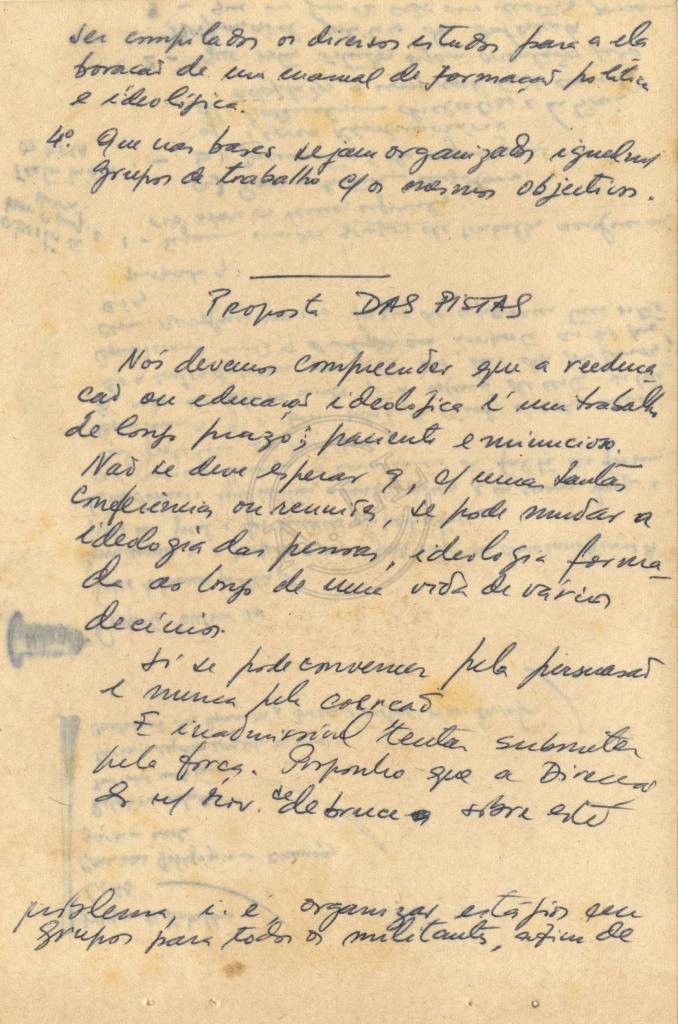 ser compilados os diversos estudos para a ela
boracaõ de um manual de formaçaõ politica
e ideológica.
4º. Que nas bases sejam organizados igualm/
grupos de trabalho c/ os mesmos objectivos.
Proposta DAS PISTAS
Nós devemos compreender que a reeduca
caõ ou educaçaõ ideologica é um trabalho
de longo prazo; paciente e minucioso.
Naõ se deve esperar q, c/ umas tantas
conferências ou reuniões, se pode mudar a
ideologia das pessoas, ideologia forma-
da ao longo de uma vida de vários
decénios.
Só se pode convencer pela persuasaõ
e nunca pela coercaõ
É inadmissivel tentar submeter
pela força. Porponho que a Direcaõ
do n/ Mov. se debruce sobre este
problema, i. e, organizar estágios em
grupos para todos os militantes, afim de